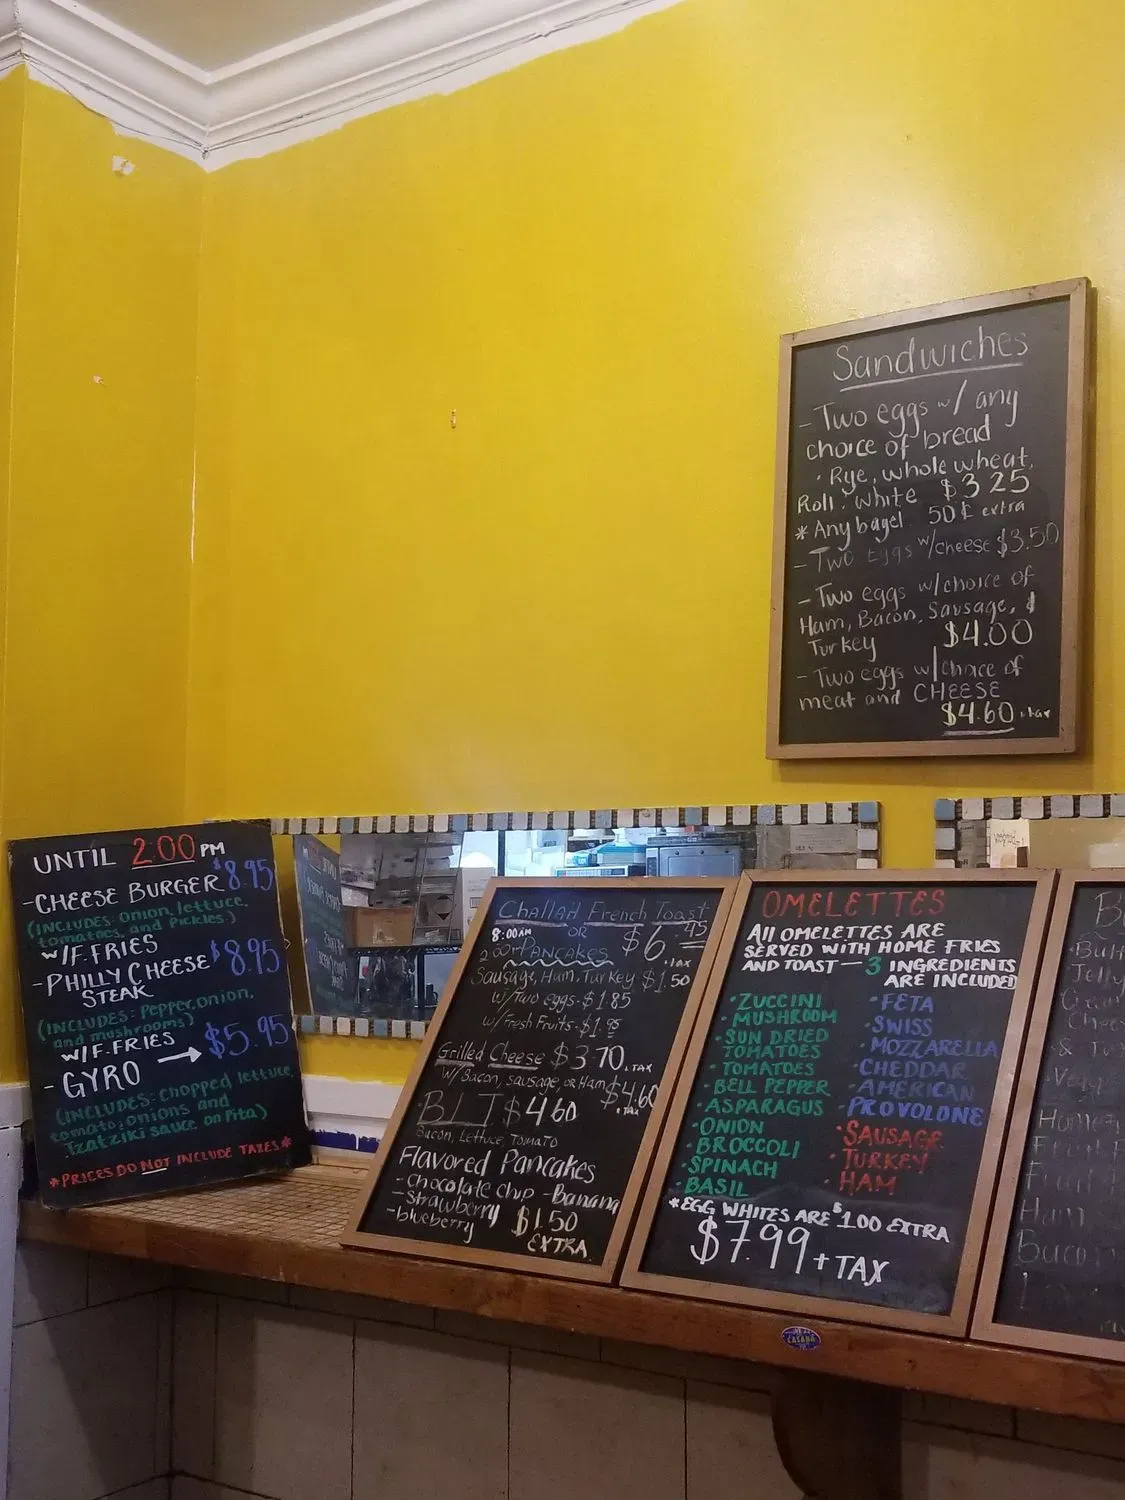 Sandwiches
- Two eggs w/ any
choice of bread
· Rye, whole wheat,
Roll, white $3.25
* Any bagel 50¢ extra
- Two Eggs w/cheese $3.50
- Two eggs w/choice of
Ham, Bacon, Sausage, &
Turkey $4.00
- Two eggs w/choice of
meat and CHEESE
$4.60 + tax
UNTIL 2:00 PM
- CHEESE BURGER $8.95
(INCLUDES: onion, lettuce,
tomatoes, and pickles.)
w/F. FRIES
- PHILLY CHEESE $8.95
STEAK
(INCLUDES: Pepper, onion,
and mushrooms)
w/F. FRIES
- GYRO → $5.95
(INCLUDES: chopped lettuce,
tomato, onions and
Tzatziki sauce on Pita)
*PRICES DO NOT INCLUDE TAXES*
Challah French Toast
8:00AM OR $6.45
PANCAKES + tax
Sausage, Ham, Turkey $1.50
w/Two eggs - $1.85
w/Fresh Fruits - $1.95
Grilled Cheese $3.70 + TAX
w/Bacon, sausage, or Ham $4.60
+ TAX
BLT $4.60
Bacon, Lettuce, Tomato
Flavored Pancakes
- chocolate chip - Banana
- strawberry $1.50
- blueberry EXTRA
OMELETTES
All OMELETTES ARE
SERVED WITH HOME FRIES
AND TOAST — 3 INGREDIENTS
ARE INCLUDED
· ZUCCINI
· MUSHROOM
· SUN DRIED
TOMATOES
· TOMATOES
· BELL PEPPER
· ASPARAGUS
· ONION
· BROCCOLI
· SPINACH
· BASIL
· FETA
· SWISS
· MOZZARELLA
· CHEDDAR
· AMERICAN
· PROVOLONE
· SAUSAGE
· TURKEY
· HAM
*EGG WHITES ARE $1.00 EXTRA
$7.99 + TAX